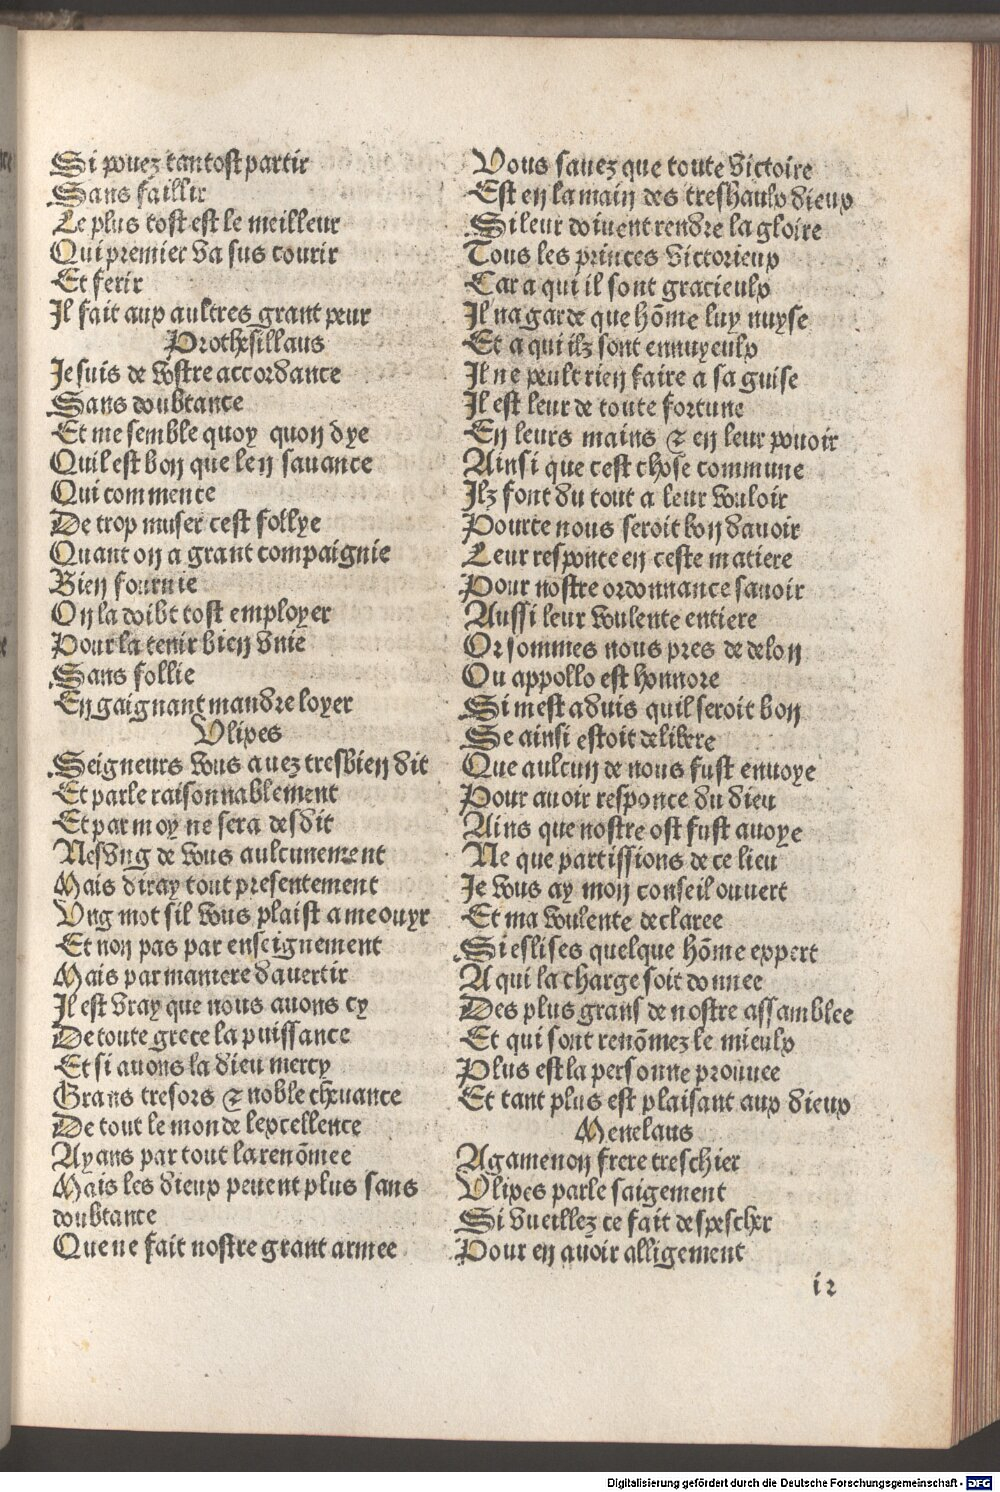 Si pouez tantost partir
Sans faillir
Le plus tost est le meilleur
Qui premier va sus courir
Et ferir
Il fait aux aultres grant peur
Prothesillaus
Je suis de vostre accordance
Sans doubtance
Et me semble quoy quon dye
Quil est bon que len sauance
Qui commence
De trop muser cest follye
Quant on a grant compaignie
Bien fournie
On la doibt tost employer
Pour la tenir bien vnie
Sans follie
En gaignant maudre loyer
Vlixes
Seigneurs vous auez tresbien dit
Et parle raisonnablement
Et par moy ne sera desdit
Nesvng de vous aulcunement
Mais diray tout presentement
Vng mot sil vous plaist a me ouyr
Et non pas par enseignement
Mais par maniere dauertir
Il est vray que nous auons cy
De toute grece la puissance
Et si auons la dieu mercy
Grans tresors ⁊ noble cheuance
De tout le monde lexcellence
Ayans par tout la renõmee
Mais les dieux peuent plus sans
doubtance
Que ne fait nostre grant armee
Vous sauez que toute victoire
Est en la main des treshaulx dieux
Si leur doiuent rendre la gloire
Tous les princes victorieux
Car a qui il sont gracieulx
Il na garde que hõme luy nuyse
Et a qui ilz sont ennuyeulx
Il ne peult rien faire a sa guise
Il est leur de toute fortune
En leurs mains ⁊ en leur pouoir
Ainsi que cest chose commune
Ilz font du tout a leur vouloir
Pource nous seroit bon dauoir
Leur responce en ceste matiere
Pour nostre ordonnance sauoir
Aussi leur voulente entiere
Or sommes nous pres de delon
Ou appollo est honnore
Si mest aduis quil seroit bon
Se ainsi estoit delibere
Que aulcun de nous fust enuoye
Pour auoir responce du dieu
Ains que nostre ost fust auoye
Ne que partissions de ce lieu
Je vous ay mon conseil ouuert
Et ma voulente declaree
Si eslises quelque hõme expert
A qui la charge soit donnee
Des plus grans de nostre assamblee
Et qui sont renõmez le mieulx
Plus est la personne prouuee
Et tant plus est plaisant aux dieux
Menelaus
Agamenon frere treschier
Vlixes parle saigement
Si vueillez ce fait despescher
Pour en auoir alligement
i2
Digitalisierung gefördert durch die Deutsche Forschungsgemeinschaft - DFG